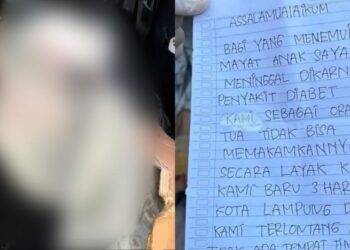 ASSALAMUALAIKUM
BAGI YANG MENEMUI
MAYAT ANAK SAYA
MENINGGAL DIKARN
PENYAKIT DIABET
KAMI SEBAGAI ORA
TUA TIDAK BISA
MEMAKAMKANNY
SECARA LAYAK K
KAMI BARU 3 HAR
KOTA LAMPUNG D
KAMI TERLONTANG
TIDAK ADA TEMPAT TIN